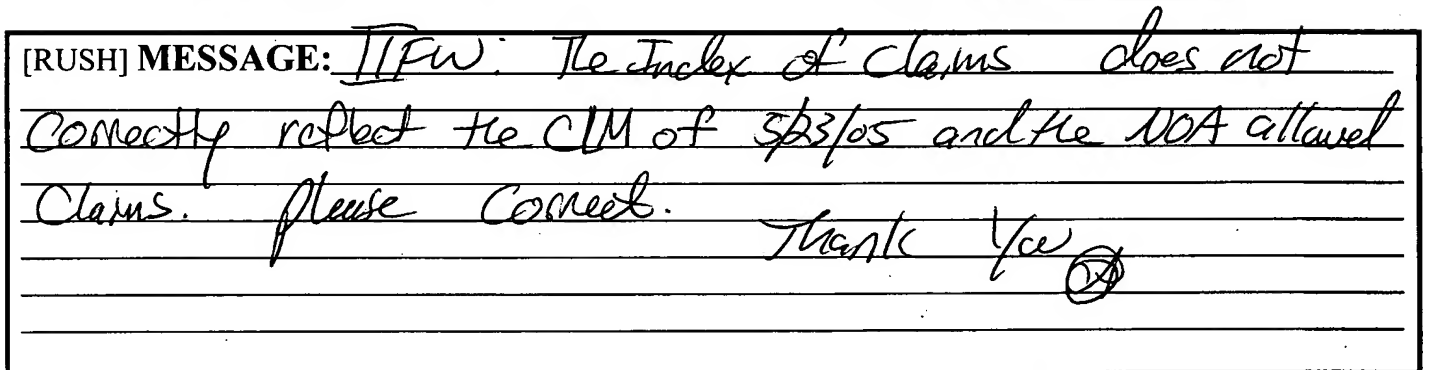 [RUSH] MESSAGE: IIFW: The Index of Claims does not
Correctly reflect the CLM of 5/23/05 and the NOA allowed
Claims. Please Correct.
Thank You